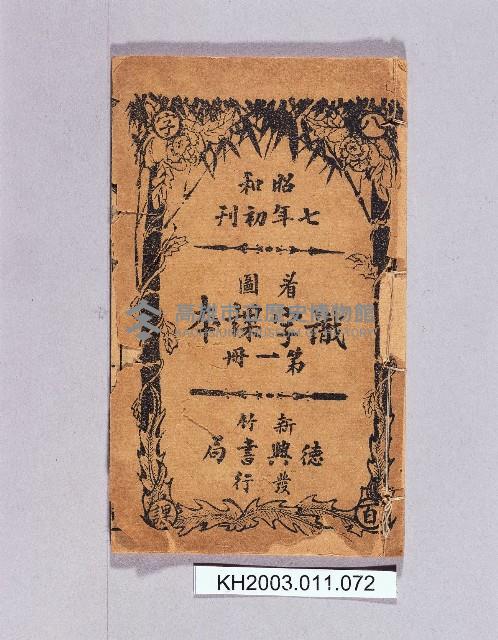 八
字
昭和
七年初刊
看圖
識字課本
第一冊
新竹
德興書局
發行
百
課
高雄市立歷史博物館
KH2003.011.072